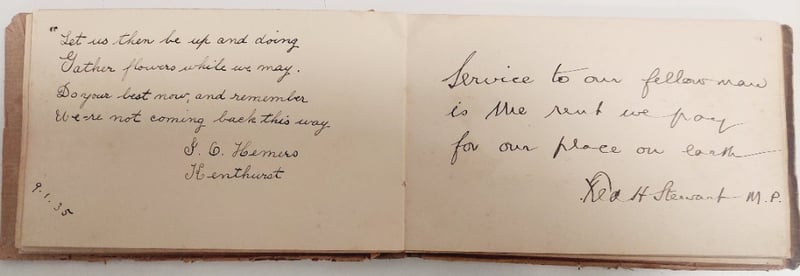 "Let us then be up and doing
Gather flowers while we may.
Do your best now, and remember
We-re not coming back this way
Hemers
Kenthurst
9.1.35
Service to our fellow man
is the rent we pay
for our place on earth
H Stewart M.P.